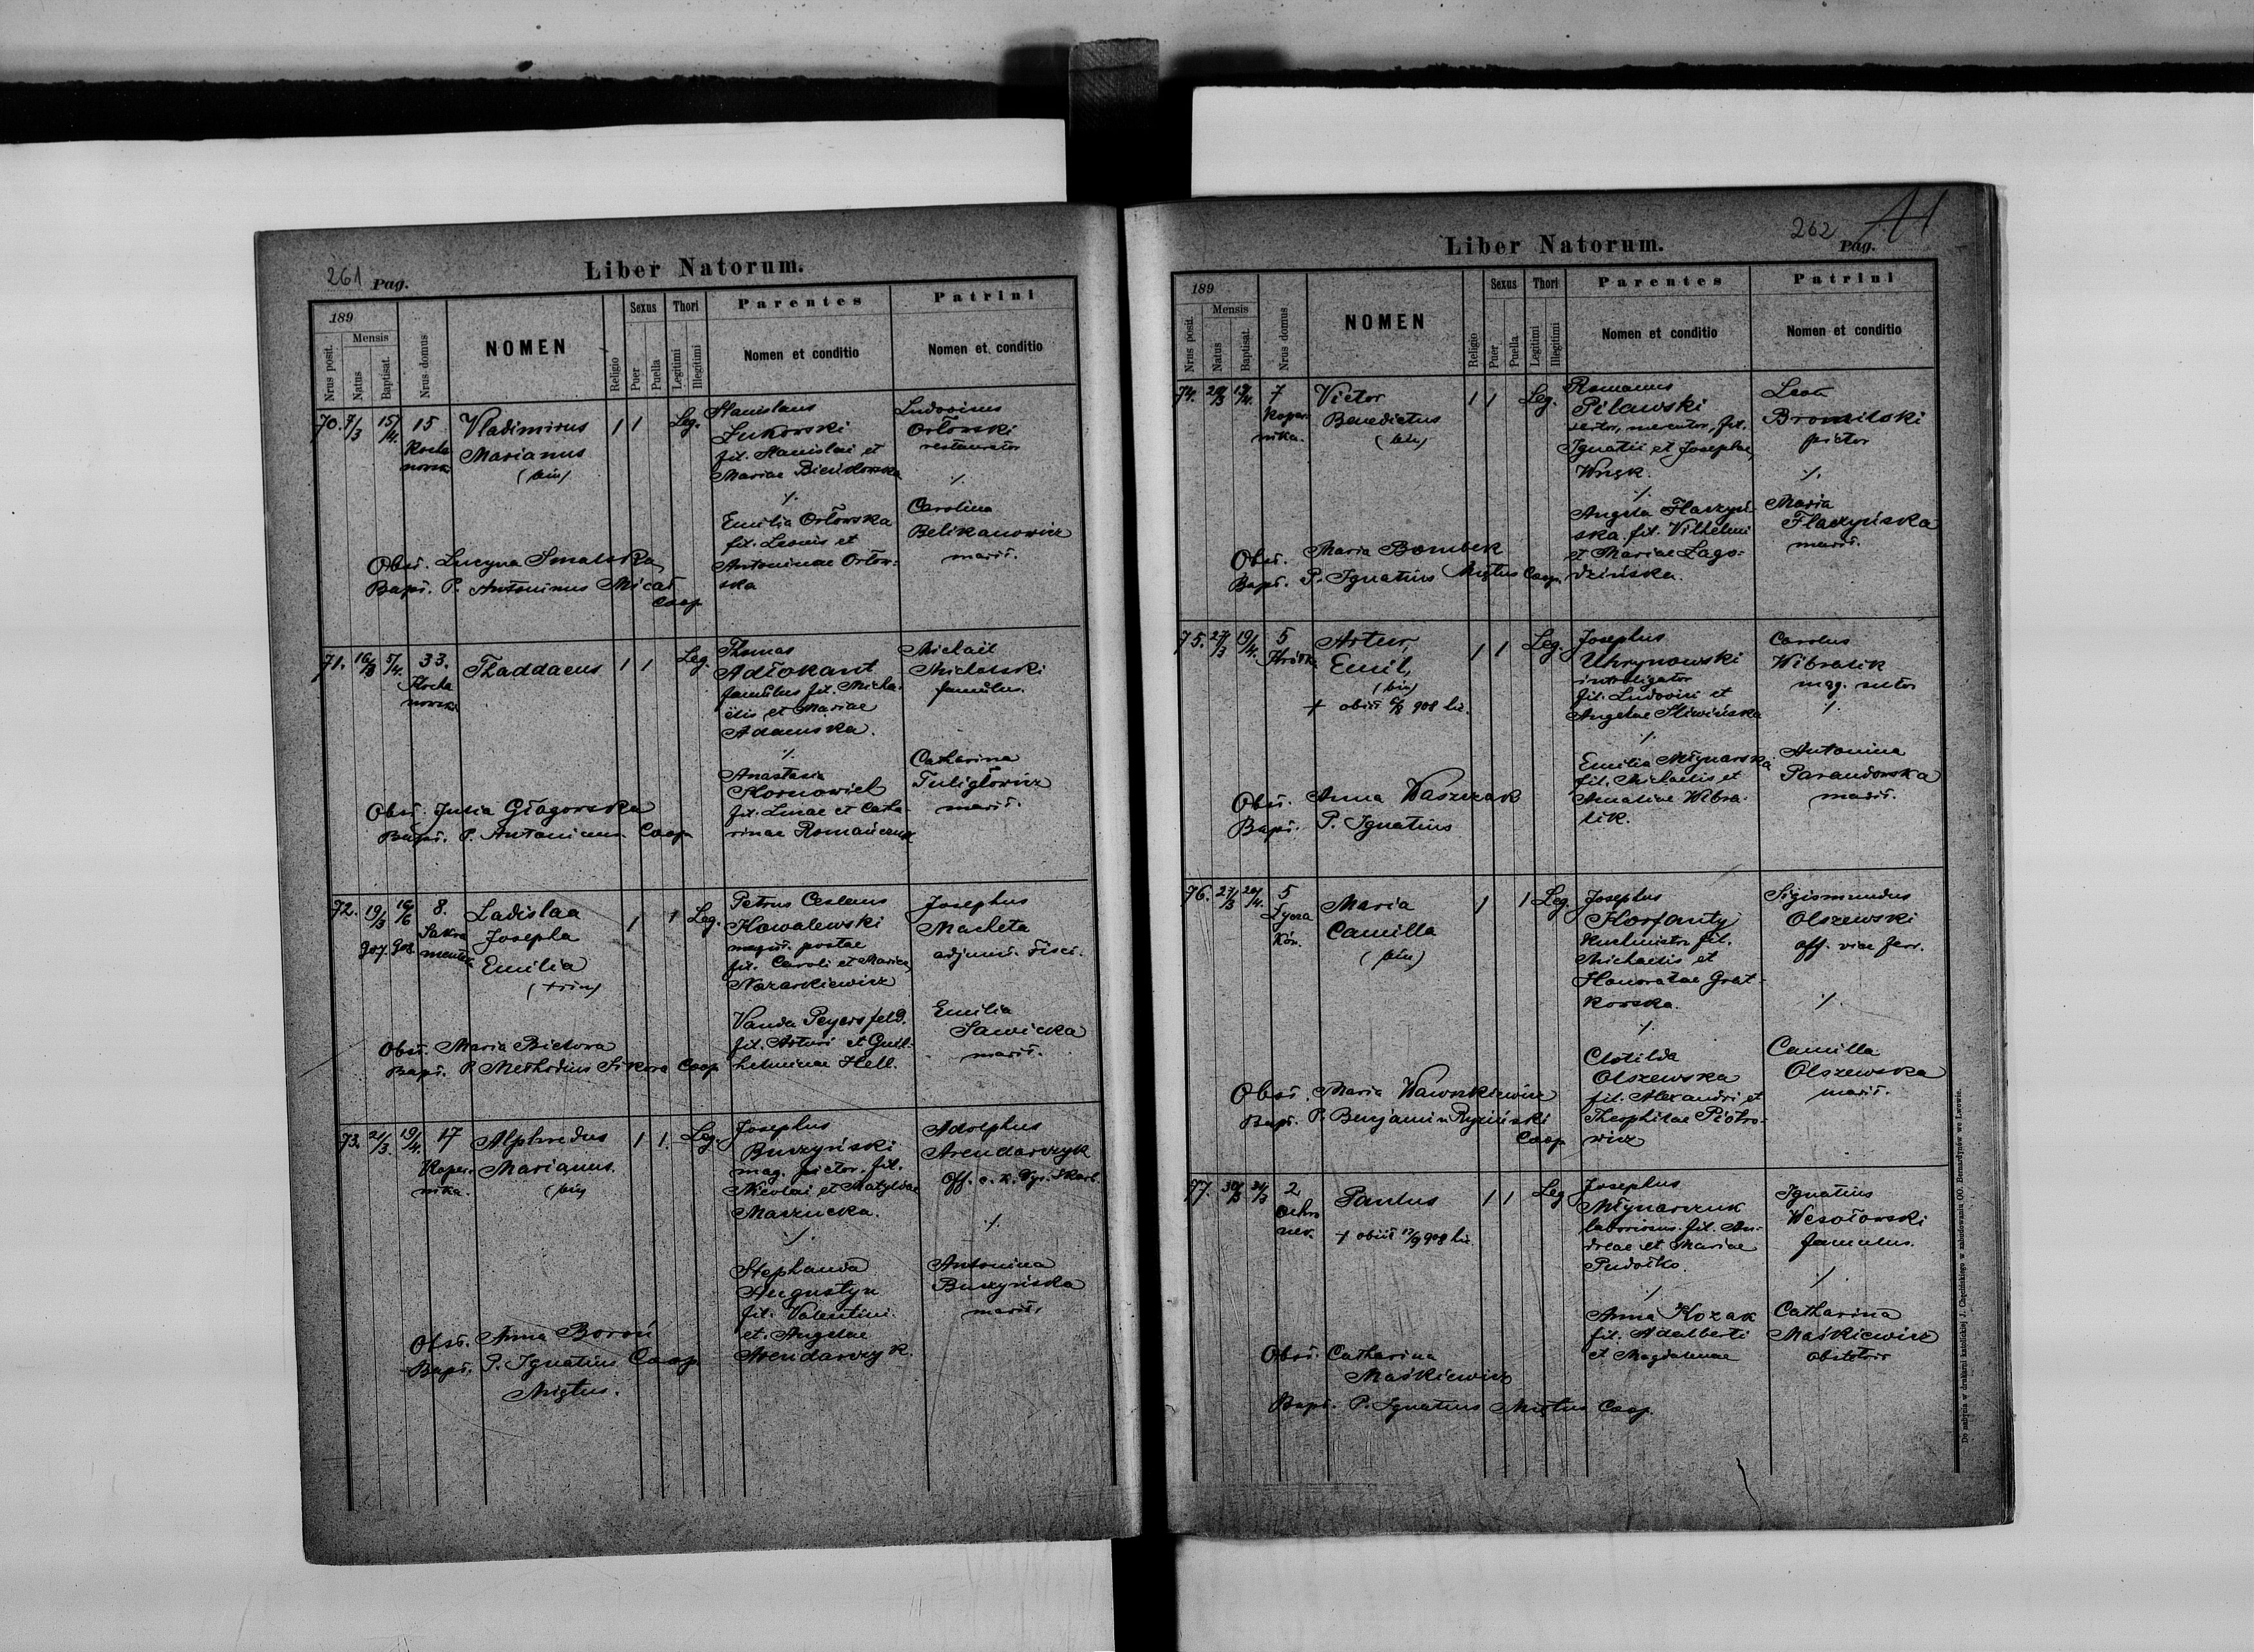 261 Pag.
Liber Natorum.
189
Nrus posit.
Mensis
Natus
Baptisat.
Nrus domus
NOMEN
Religio
Sexus
Puer
Puella
Thori
Legitimi
Illegitimi
Parentes
Nomen et conditio
Patrini
Nomen et conditio
70. 7/3 15/4. 15 Vladimirus 1 1 Leg.
Kocha
nowsk.
Marianus
(bin)
Stanislaus
Żukowski
fil. Stanislai et
Mariae
%
Emilia Orłowska
fil. Leonis et
Antoninae Orłow-
ska
Ludovicus
Orłowski
restaurator
%
Carolina
Belikanowicz
marit.
Obst. Lucyna Smalska
Bapt. P. Antoninus Micał
Coop
71. 16/3 5/4. 33. Thaddaeus 1 1 Leg.
Kocha
nowsk.
Thomas
Adłokant
famulus fil. Micha-
ëlis et Mariae
Adamska.
%
Anastasia
Kornowiel
fil. Lucae et Catha
rinae Romańczuk
Michaël
Michalski
famulus.
Catharina
Tuligłowicz
marit.
Obst. Julia Głagorska
Bapt. P. Antoninus Coop
72. 19/3 16/6 8. Ladislaa 1 1 Leg.
907. 908
Sakra
mentek
Josepha
Emilia
(trin)
Petrus Ceslaus
Kowalewski
magist. postae
fil. Caroli et Mariae
Nazarkiewicz
Vanda Peyersfeld.
fil. Arturi et Guil-
helminae Hell.
Josephus
Macheta
adjunct. fisci.
Emilia
Sawicka
marit.
Obst. Maria Bielowa
Bapt. P. Methodius Sikora Coop
73. 21/3 19/4. 17 Alphredus 1 1. Leg.
Koper-
nika.
Marianus.
(bin)
Josephus
Buszyński
mag. pictor. fil.
Nicolai et Matyldae
Maszucka.
%
Stephania
Augustyn
fil. Valentini.
et. Angelae
Arendarczyk.
Adolphus
Arendarczyk
Off. c. k. Dyr. Skarb.
%
Antonina
Buszyńska
marit.
Obst. Anna Boroń
Bapt. P. Ignatius Coop
Miętus.
262 Pag.
41
Liber Natorum.
189
Nrus posit.
Mensis
Natus
Baptisat.
Nrus domus
NOMEN
Religio
Sexus
Puer
Puella
Thori
Legitimi
Illegitimi
Parentes
Nomen et conditio
Patrini
Nomen et conditio
74. 7 Victor 1 1 Leg.
Koper-
nika.
Benedictus
(bin)
Romanus
Pilawski
mercator, fil.
Ignatii et Josephae
%
Angela Flaczyń-
ska. fil. Vilhelmi
et Mariae Łago-
dzińska.
Leon
Bromilski
pictor
%
Maria
Flaczyńska
marit.
Obst. Maria Bombek
Bapt. P. Ignatius Miętus Coop.
75. 27/3 19/4. 5 Artur, 1 1 Leg.
Emil,
(bin)
+ obiit 908 hic.
Josephus
Uhrynowski
introligator
fil. Ludovici et
Angelae Śliwińska
%
Emilia Młynarska
fil. Michaelis et
Amaliae Wibra-
lik.
Carolus
Wibralik
mag. sutor
%
Antonina
Parandowska
marit.
Obst. Anna Waszczak
Bapt. P. Ignatius
76. 27/3 20/4. 5 Maria 1 1 Leg.
Łycza
ków.
Camilla
(bin)
Josephus
Korfanty
fil.
Michaelis et
Honoratae Grat-
kowska.
%
Clotilda
Olszewska
fil. Alexandri et
Theophilae Piotro-
wicz
Sigismundus
Olszewski
off. viae ferr.
%
Camilla
Olszewska
marit.
Obst. Maria Wawrzkiewicz
Bapt. P. Benjamin Ryziński
Coop.
77. 30/3 31/3 2 Paulus 1 1 Leg
Ochro
nek.
+ obiit 17/9 908 hic.
Josephus
Młynarczuk
laboriosus. fil. An-
dreae et Mariae
Pudołko.
%
Anna Kozak
fil. Adalberti
et Magdalenae
Ignatius
Wesołowski
famulus.
%
Catharina
Maśkiewicz
obstetrix
Obst. Catharina
Maśkiewicz
Bapt. P. Ignatius Miętus Coop.
Do nabycia w drukarni katolickiej J. Chęcińskiego w zabudowaniu OO. Bernardynów we Lwowie.